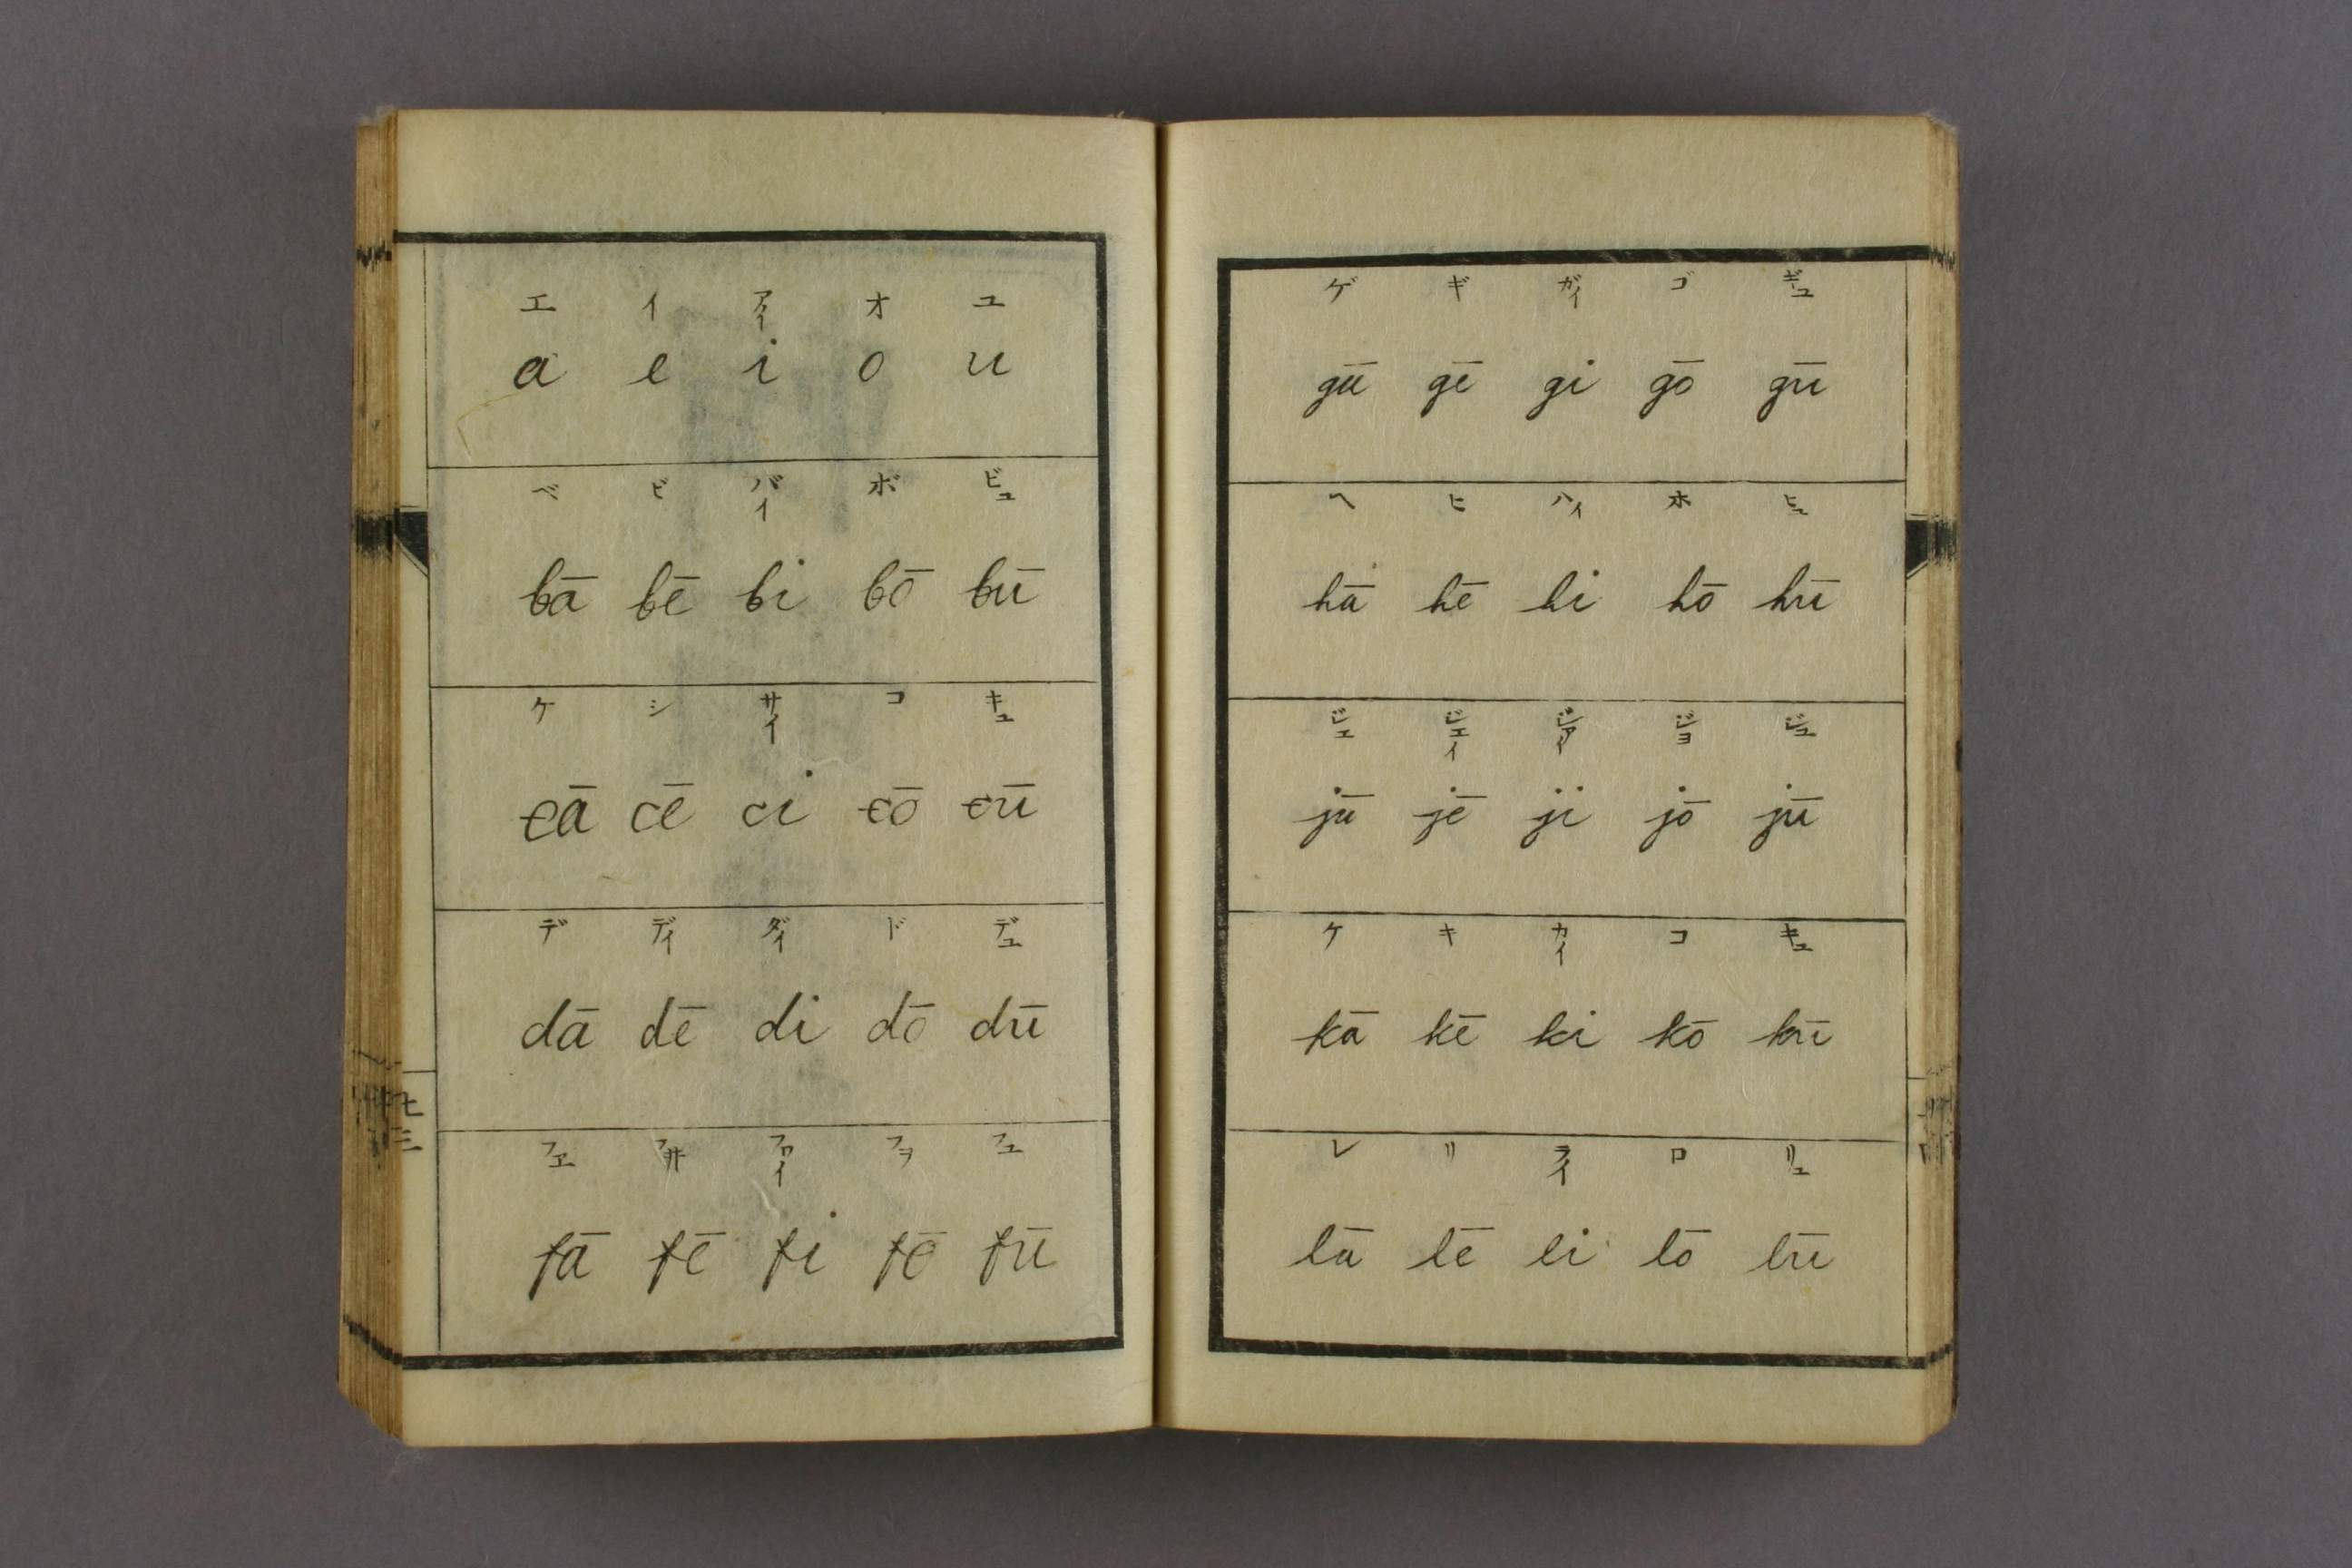 エ イ アイ オ ユ
a e i o u
ベ ビ バイ ボ ビュ
bā bē bi bō bū
ケ シ サイ コ キュ
cā cē ci cō cū
デ ディ ダイ ド デュ
dā dē di dō dū
フエ フ井 フワイ フヲ フユ
fā fē fi fō fū
七
三
ゲ ギ ガイ ゴ ギュ
gā gē gi gō gū
ヘ ヒ ハイ ホ ヒュ
hā hē hi hō hū
ジエ ジエイ ジアイ ジヨ ジユ
jā jē ji jō jū
ケ キ カイ コ キュ
kā kē ki kō kū
レ リ ライ ロ リュ
lā lē li lō lū